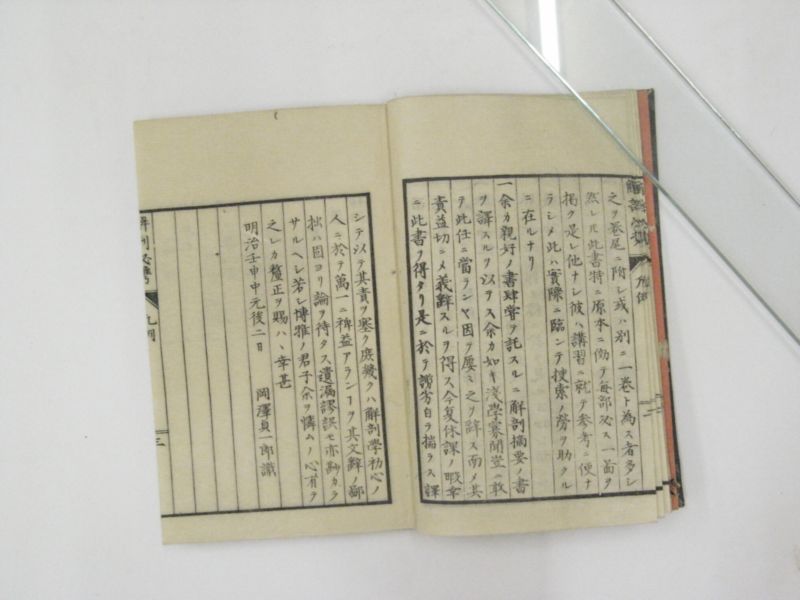 之ヲ巻尾ニ附シ或ハ別ニ一巻ト為ス者多シ
然レ𪜈此書特ニ原本ニ倣テ毎部必ス一圖ヲ
掲ク是レ他ナシ彼ハ講習ニ就テ參考ニ便ナ
ラシメ此ハ實際ニ臨ンテ捜索ノ勞ヲ助クル
ニ在ルナリ
一余カ親好ノ書肆嘗テ託スルニ解剖摘要ノ書
ヲ譯スルヲ以テス余カ如キ淺學寡聞豈ニ敢
テ此任ニ當ランヤ因テ屢〻之ヲ辭ス而メ其
責益切ニメ義辭スルヲ得ス今夏休課ノ暇幸
ニ此書ヲ得タリ是ニ於テ謭劣自ラ揣ラス譯
シテ以テ其責ヲ塞ク庶幾クハ解剖學初心ノ
人ニ於テ萬一ニ裨益アランヿヲ其文辭ノ鄙
拙ハ固ヨリ論ヲ待タス遺漏謬誤モ亦尠カラ
サルヘシ若シ博雅ノ君子余ヲ憐ムノ心有テ
之レカ釐正ヲ賜ハヽ幸甚
明治壬申中元後二日
岡澤貞一郎識
凡例
三